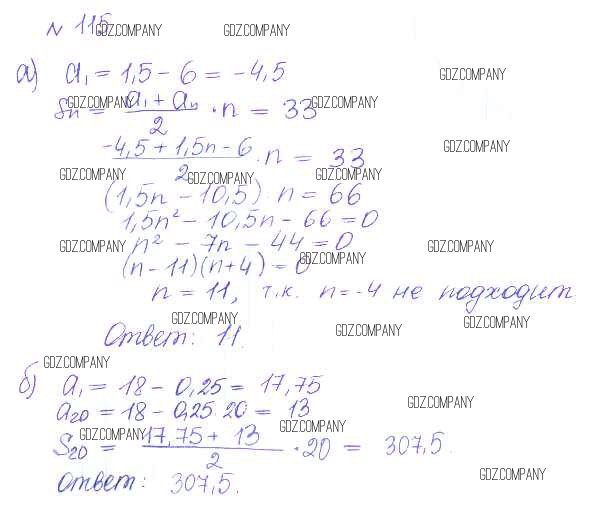 № 115
GDZ.COMPANY GDZ.COMPANY
а) a₁ = 1,5 − 6 = −4,5
GDZ.COMPANY
Sn = (a₁ + an)/2 · n = 33
GDZ.COMPANY GDZ.COMPANY
(−4,5 + 1,5n − 6)/2 · n = 33
GDZ.COMPANY
GDZ.COMPANY GDZ.COMPANY GDZ.COMPANY
(1,5n − 10,5) · n = 66
1,5n² − 10,5n − 66 = 0
n² − 7n − 44 = 0
GDZ.COMPANY GDZ.COMPANY GDZ.COMPANY
(n − 11)(n + 4) = 0
n = 11, т.к. n = −4 не подходит
GDZ.COMPANY GDZ.COMPANY GDZ.COMPANY
Ответ: 11.
GDZ.COMPANY
б) a₁ = 18 − 0,25 = 17,75
a₂₀ = 18 − 0,25 · 20 = 13
GDZ.COMPANY
S₂₀ = (17,75 + 13)/2 · 20 = 307,5.
GDZ.COMPANY GDZ.COMPANY
Ответ: 307,5.
GDZ.COMPANY